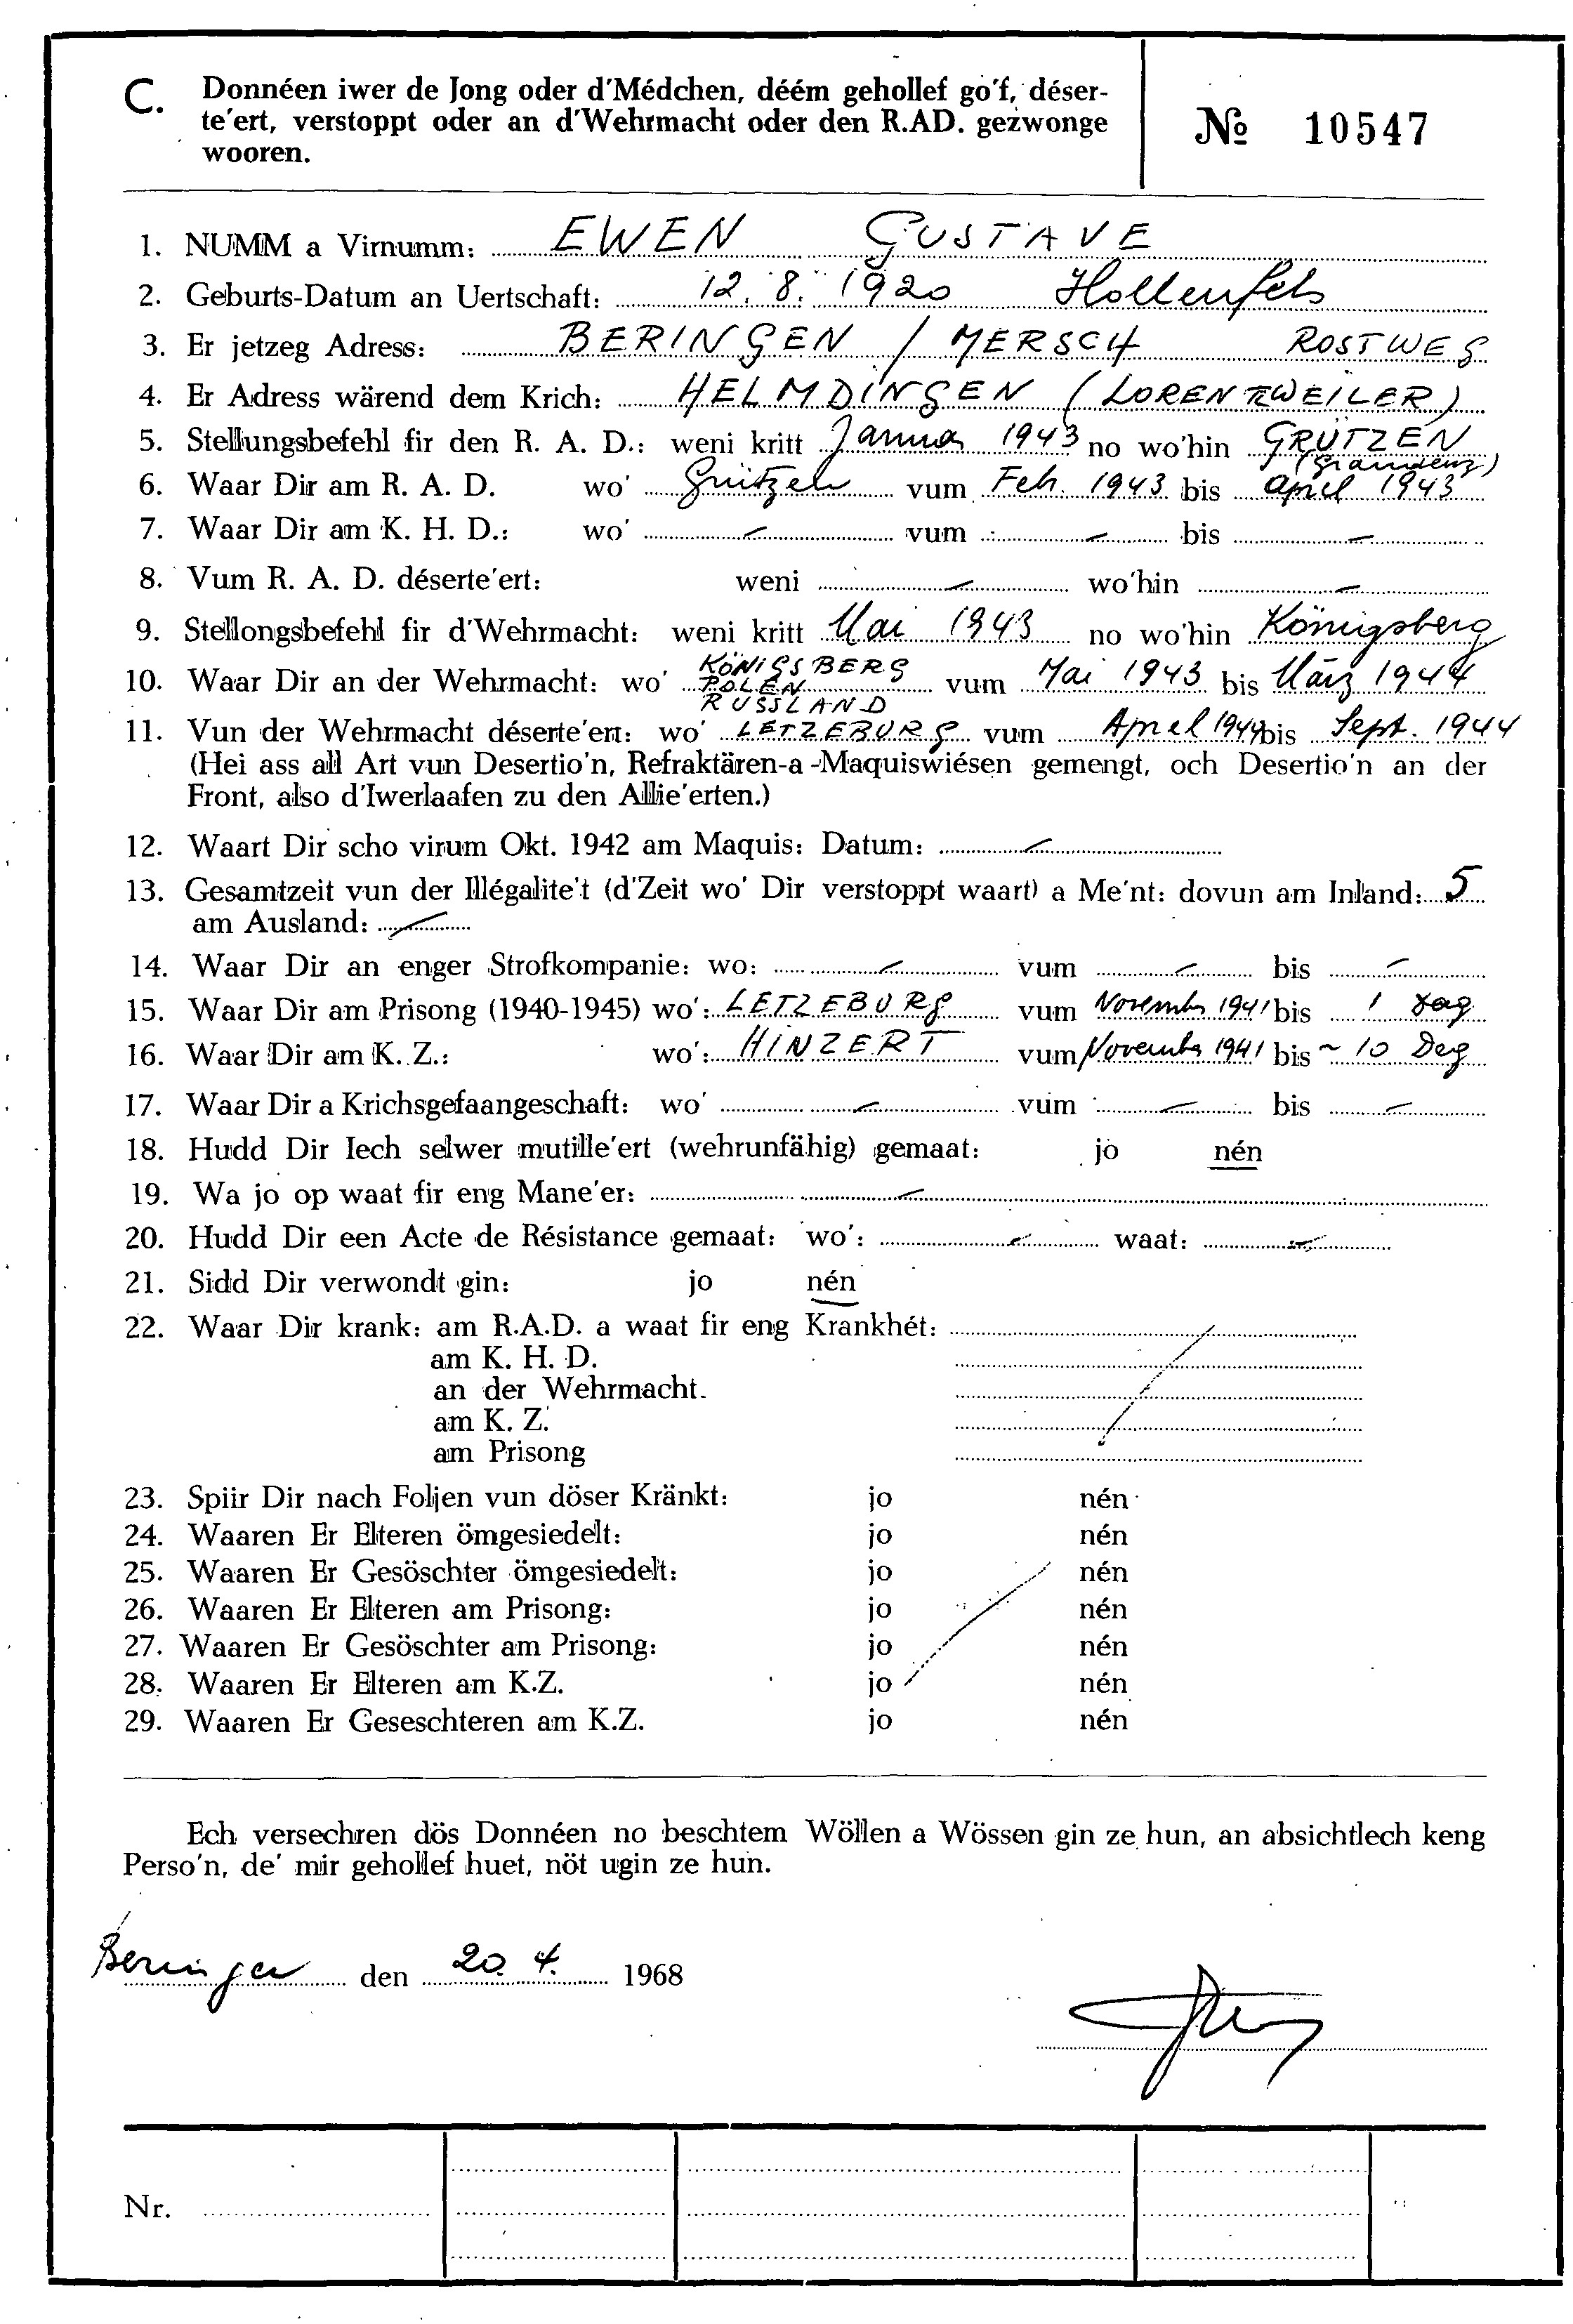 C. Donnéen iwer de Jong oder d'Médchen, déém gehollef go'f, déser-
te'ert, verstoppt oder an d'Wehrmacht oder den R.AD. gezwonge
wooren.
№ 10547
1. NUMM a Virnumm: EWEN GUSTAVE
2. Geburts-Datum an Uertschaft: 12. 8. 1920 Hollenfels
3. Er jetzeg Adress: BERINGEN / MERSCH ROSTWEG
4. Er Adress wärend dem Krich: HELMDINGEN (LORENTZWEILER)
5. Stellungsbefehl fir den R. A. D.: weni kritt Januar 1943 no wo'hin GRÜTZEN
(Graudenz)
6. Waar Dir am R. A. D. wo' Grützen vum Feb. 1943 bis April 1943
7. Waar Dir am K. H. D.: wo' – vum – bis –
8. Vum R. A. D. déserte'ert: weni – wo'hin –
9. Stellongsbefehl fir d'Wehrmacht: weni kritt Mai 1943 no wo'hin Königsberg
10. Waar Dir an der Wehrmacht: wo' KÖNIGSBERG POLEN RUSSLAND vum Mai 1943 bis März 1944
11. Vun der Wehrmacht déserte'ert: wo' LETZEBURG vum April 1944 bis Sept. 1944
(Hei ass all Art vun Desertio'n, Refraktären-a-Maquiswiésen gemengt, och Desertio'n an der
Front, also d'Iwerlaafen zu den Allie'erten.)
12. Waart Dir scho virum Okt. 1942 am Maquis: Datum: –
13. Gesamtzeit vun der Illégalite't (d'Zeit wo' Dir verstoppt waart) a Me'nt: dovun am Inland: 5
am Ausland: –
14. Waar Dir an enger Strofkompanie: wo: – vum – bis –
15. Waar Dir am Prisong (1940-1945) wo': LETZEBURG vum November 1941 bis 1 Dag
16. Waar Dir am K. Z.: wo': HINZERT vum November 1941 bis ~ 10 Deg
17. Waar Dir a Krichsgefaangeschaft: wo' – vum – bis –
18. Hudd Dir Iech selwer mutille'ert (wehrunfähig) gemaat: jo nén
19. Wa jo op waat fir eng Mane'er: –
20. Hudd Dir een Acte de Résistance gemaat: wo': – waat: –
21. Sidd Dir verwondt gin: jo nén
22. Waar Dir krank: am R.A.D. a waat fir eng Krankhét:
am K. H. D.
an der Wehrmacht.
am K. Z.
am Prisong
23. Spiir Dir nach Foljen vun döser Kränkt: jo nén
24. Waaren Er Elteren ömgesiedelt: jo nén
25. Waaren Er Gesöschter ömgesiedelt: jo nén
26. Waaren Er Elteren am Prisong: jo nén
27. Waaren Er Gesöschter am Prisong: jo nén
28. Waaren Er Elteren am K.Z. jo nén
29. Waaren Er Geseschteren am K.Z. jo nén
Ech versechren dös Donnéen no beschtem Wöllen a Wössen gin ze hun, an absichtlech keng
Perso'n, de' mir gehollef huet, nöt ugin ze hun.
Beringen den 20. 4. 1968
Nr.